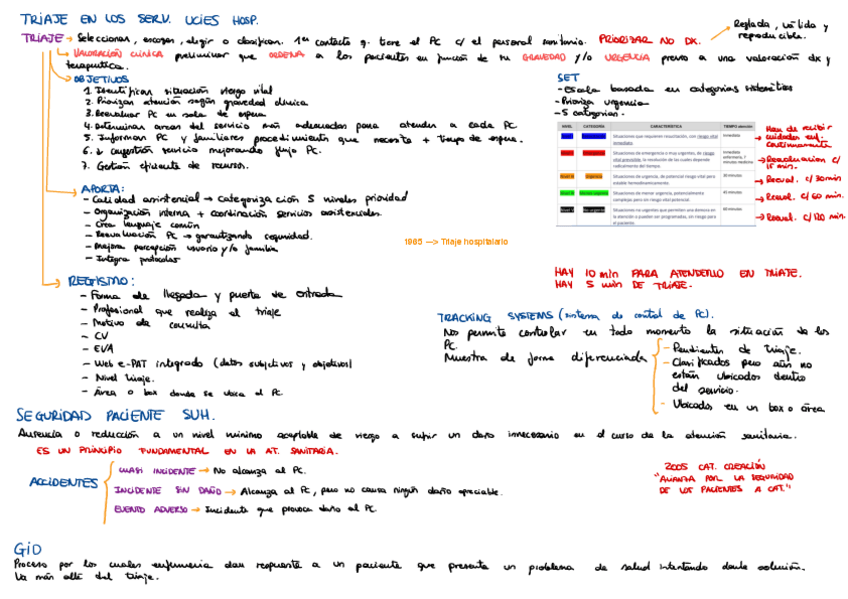 TRIAJE EN LOS SERV. UCIES HOSP.
TRIAJE → Seleccionar, escoger, elegir o clasificar. 1er contacto q. tiene el PC c/ el personal sanitario. PRIORIZAR NO DX.
Reglada, válida y
reproducible.
VALORACIÓN CLÍNICA preliminar que ORDENA a los pacientes en función de su GRAVEDAD y/o URGENCIA previo a una valoración dx y
terapéutica.
OBJETIVOS
1. Identificar situación riesgo vital
2. Priorizar atención según gravedad clínica
3. Reevaluar PC en sala de espera
4. Determinar areas del servicio más adecuadas para atender a cada PC
5. Informar PC y familiares procedimientos que necesita + tiempo de espera.
6. ↓ congestión servicio mejorando flujo PC.
7. Gestión eficiente de recursos.
SET
- Escala basada en categorías sistemática
- Prioriza urgencia
- 5 categorías.
NIVEL CATEGORÍA CARACTERÍSTICA TIEMPO atención
Situaciones que requieren resucitación, con riesgo vital
inmediato
Inmediato
Situaciones de emergencia o muy urgentes, de riesgo
vital previsible, la resolución de las cuales depende
radicalmente del tiempo.
Inmediato
enfermería, 7
minutos medicina
Nivel III Urgencia Situaciones de urgencia, de potencial riesgo vital pero
estable hemodinámicamente
30 minutos
Situaciones de menor urgencia, potencialmente
complejas pero sin riesgo vital potencial.
45 minutos
Situaciones no urgentes que permiten una demora en
la atención o pueden ser programadas, sin riesgo para
el paciente
60 minutos
Han de recibir
cuidados enf.
continuamente
→ Reevaluación c/
15 min.
→ Reeval. c/ 30 min
→ Reeval. c/ 60 min.
→ Reeval. c/ 120 min.
APORTA:
- Calidad asistencial → Categorización 5 niveles prioridad
- Organización interna + coordinación servicios asistenciales.
- Crea lenguaje común
- Reevaluación PC → garantizando seguridad.
- Mejora percepción usuario y/o familia
- Integra protocolos
1965 —> Triaje hospitalario
HAY 10 min PARA ATENDERLO EN TRIAJE.
HAY 5 min DE TRIAJE.
REGISTRO:
- Forma de llegada y puerta de entrada
- Profesional que realiza el triaje
- Motivo de consulta
- CV
- EVA
- Web e-PAT integrado (datos subjetivos y objetivos)
- Nivel triaje.
- Área o box donde se ubica el PC.
TRACKING SYSTEMS (sistema de control de PC).
Nos permite controlar en todo momento la situación de los
PC.
Muestra de forma diferenciada
- Pendientes de triaje.
- Clasificados pero aún no
están ubicados dentro
del servicio.
- Ubicados en un box o área
SEGURIDAD PACIENTE SUH.
Ausencia o reducción a un nivel mínimo aceptable de riesgo a sufrir un daño innecesario en el curso de la atención sanitaria.
ES UN PRINCIPIO FUNDAMENTAL EN LA AT. SANITARIA.
ACCIDENTES
CUASI INCIDENTE → No alcanza al PC.
INCIDENTE SIN DAÑO → Alcanza al PC, pero no causa ningún daño apreciable.
EVENTO ADVERSO → Incidente que provoca daño al PC.
2005 CAT. CREACIÓN
"ALIANZA POR LA SEGURIDAD
DE LOS PACIENTES A CAT."
GiD
Proceso por los cuales enfermeria dan respuesta a un paciente que presenta un problema de salud intentando darle solución.
Va más allá del triaje.